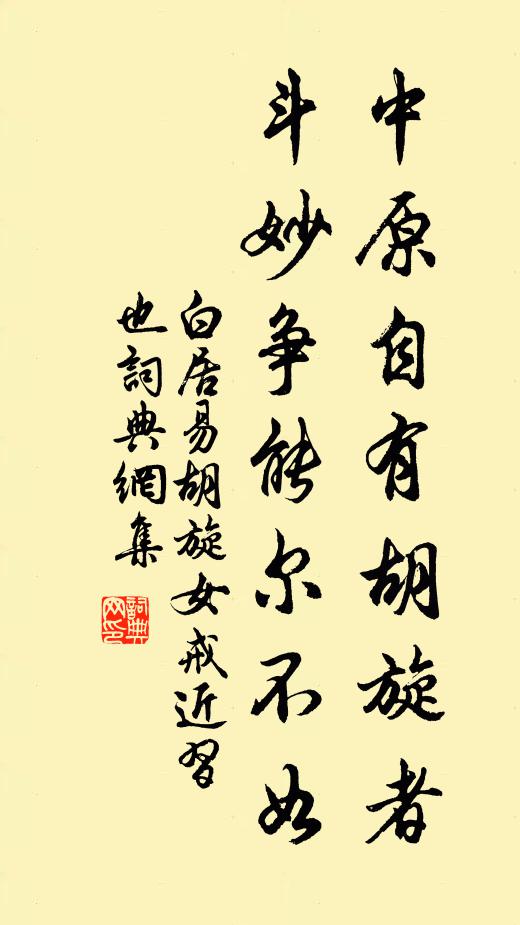 中原自有胡旋者
斗妙争能尔不如
白居易胡旋女戒近習
也詞典網集
詞典
网印